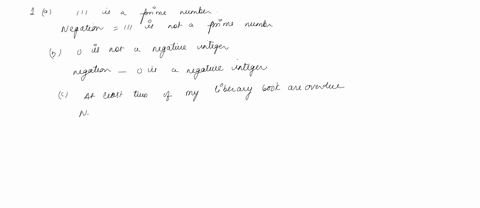 2 (a) 111 is a prime number.
Negation = 111 is not a prime number
(b) 0 is not a negative integer
negation - 0 is a negative integer
(c) At least two of my liberary book are overdue
N.